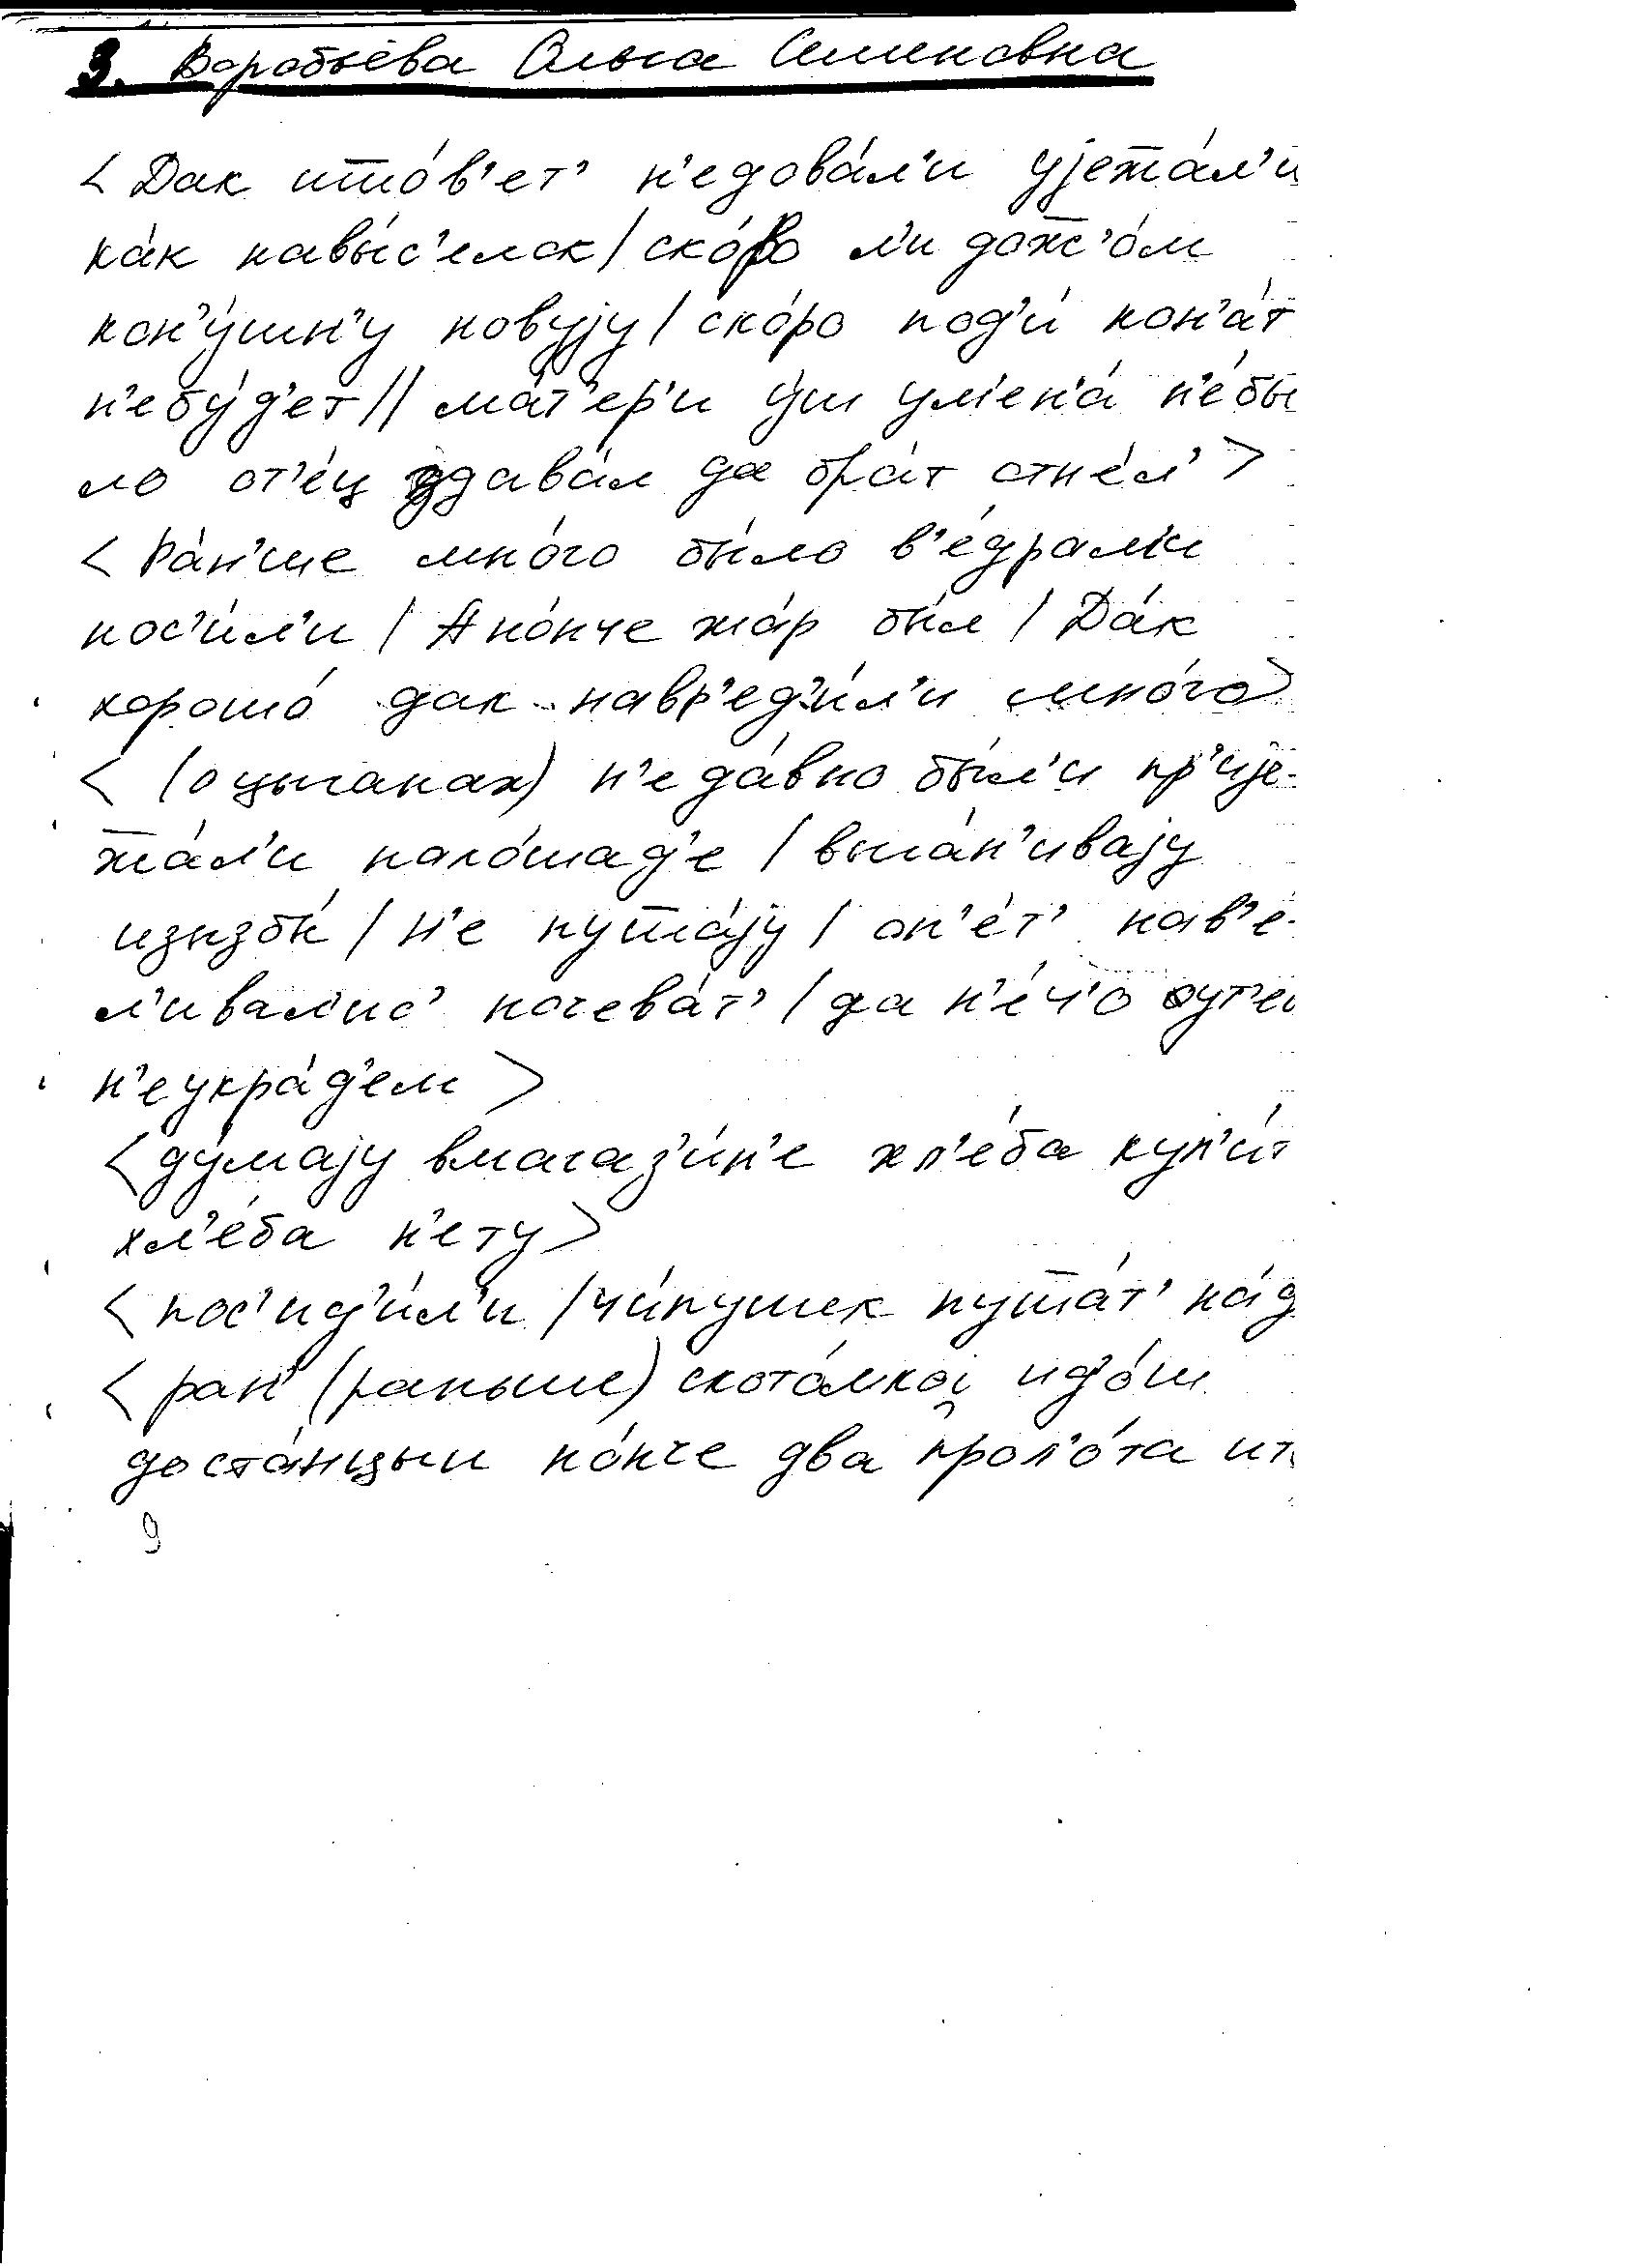 3. Воробьёва Ольга Семеновна
< Дак што́в'ет' н'едова́л'и уjежа́л'и
ка́к навы́с'елок / ско́ро л'и дож'о́м
кон'у́шн'у новуjу / ско́ро под'и́ кон'а́т
н'ебу́д'ет // ма́т'ер'и у́ш ум'ен'а́ н'е́бы
ло от'е́ц здава́л да бра́т отне́л' >
< Ра́н'ше мно́го бы́ло в'е́драм'и
нос'и́л'и / А но́нче жа́р бы́л / Да́к
хорошо́ дак навр'ед'и́л'и мно́го >
< (о цыганах) н'еда́вно бы́л'и пр'иjе-
жа́л'и нало́шад'е / выга́н'иваjу
изызбы́ / н'е пуша́jу / оп'е́т' нав'е́-
л'ивал'ис' ночева́т' / да н'е́ч'о оут'еі
н'еукра́д'ем >
< ду́маjу вмагаз'и́н'е хл'е́ба куп'и́т
хл'е́ба н'ету >
< пос'ид'и́л'и / чи́пушек пуша́т' на́д
< ран' (раньше) ското́мкоj ид'о́ш
доста́нцыи но́нче два прол'о́та ит
9